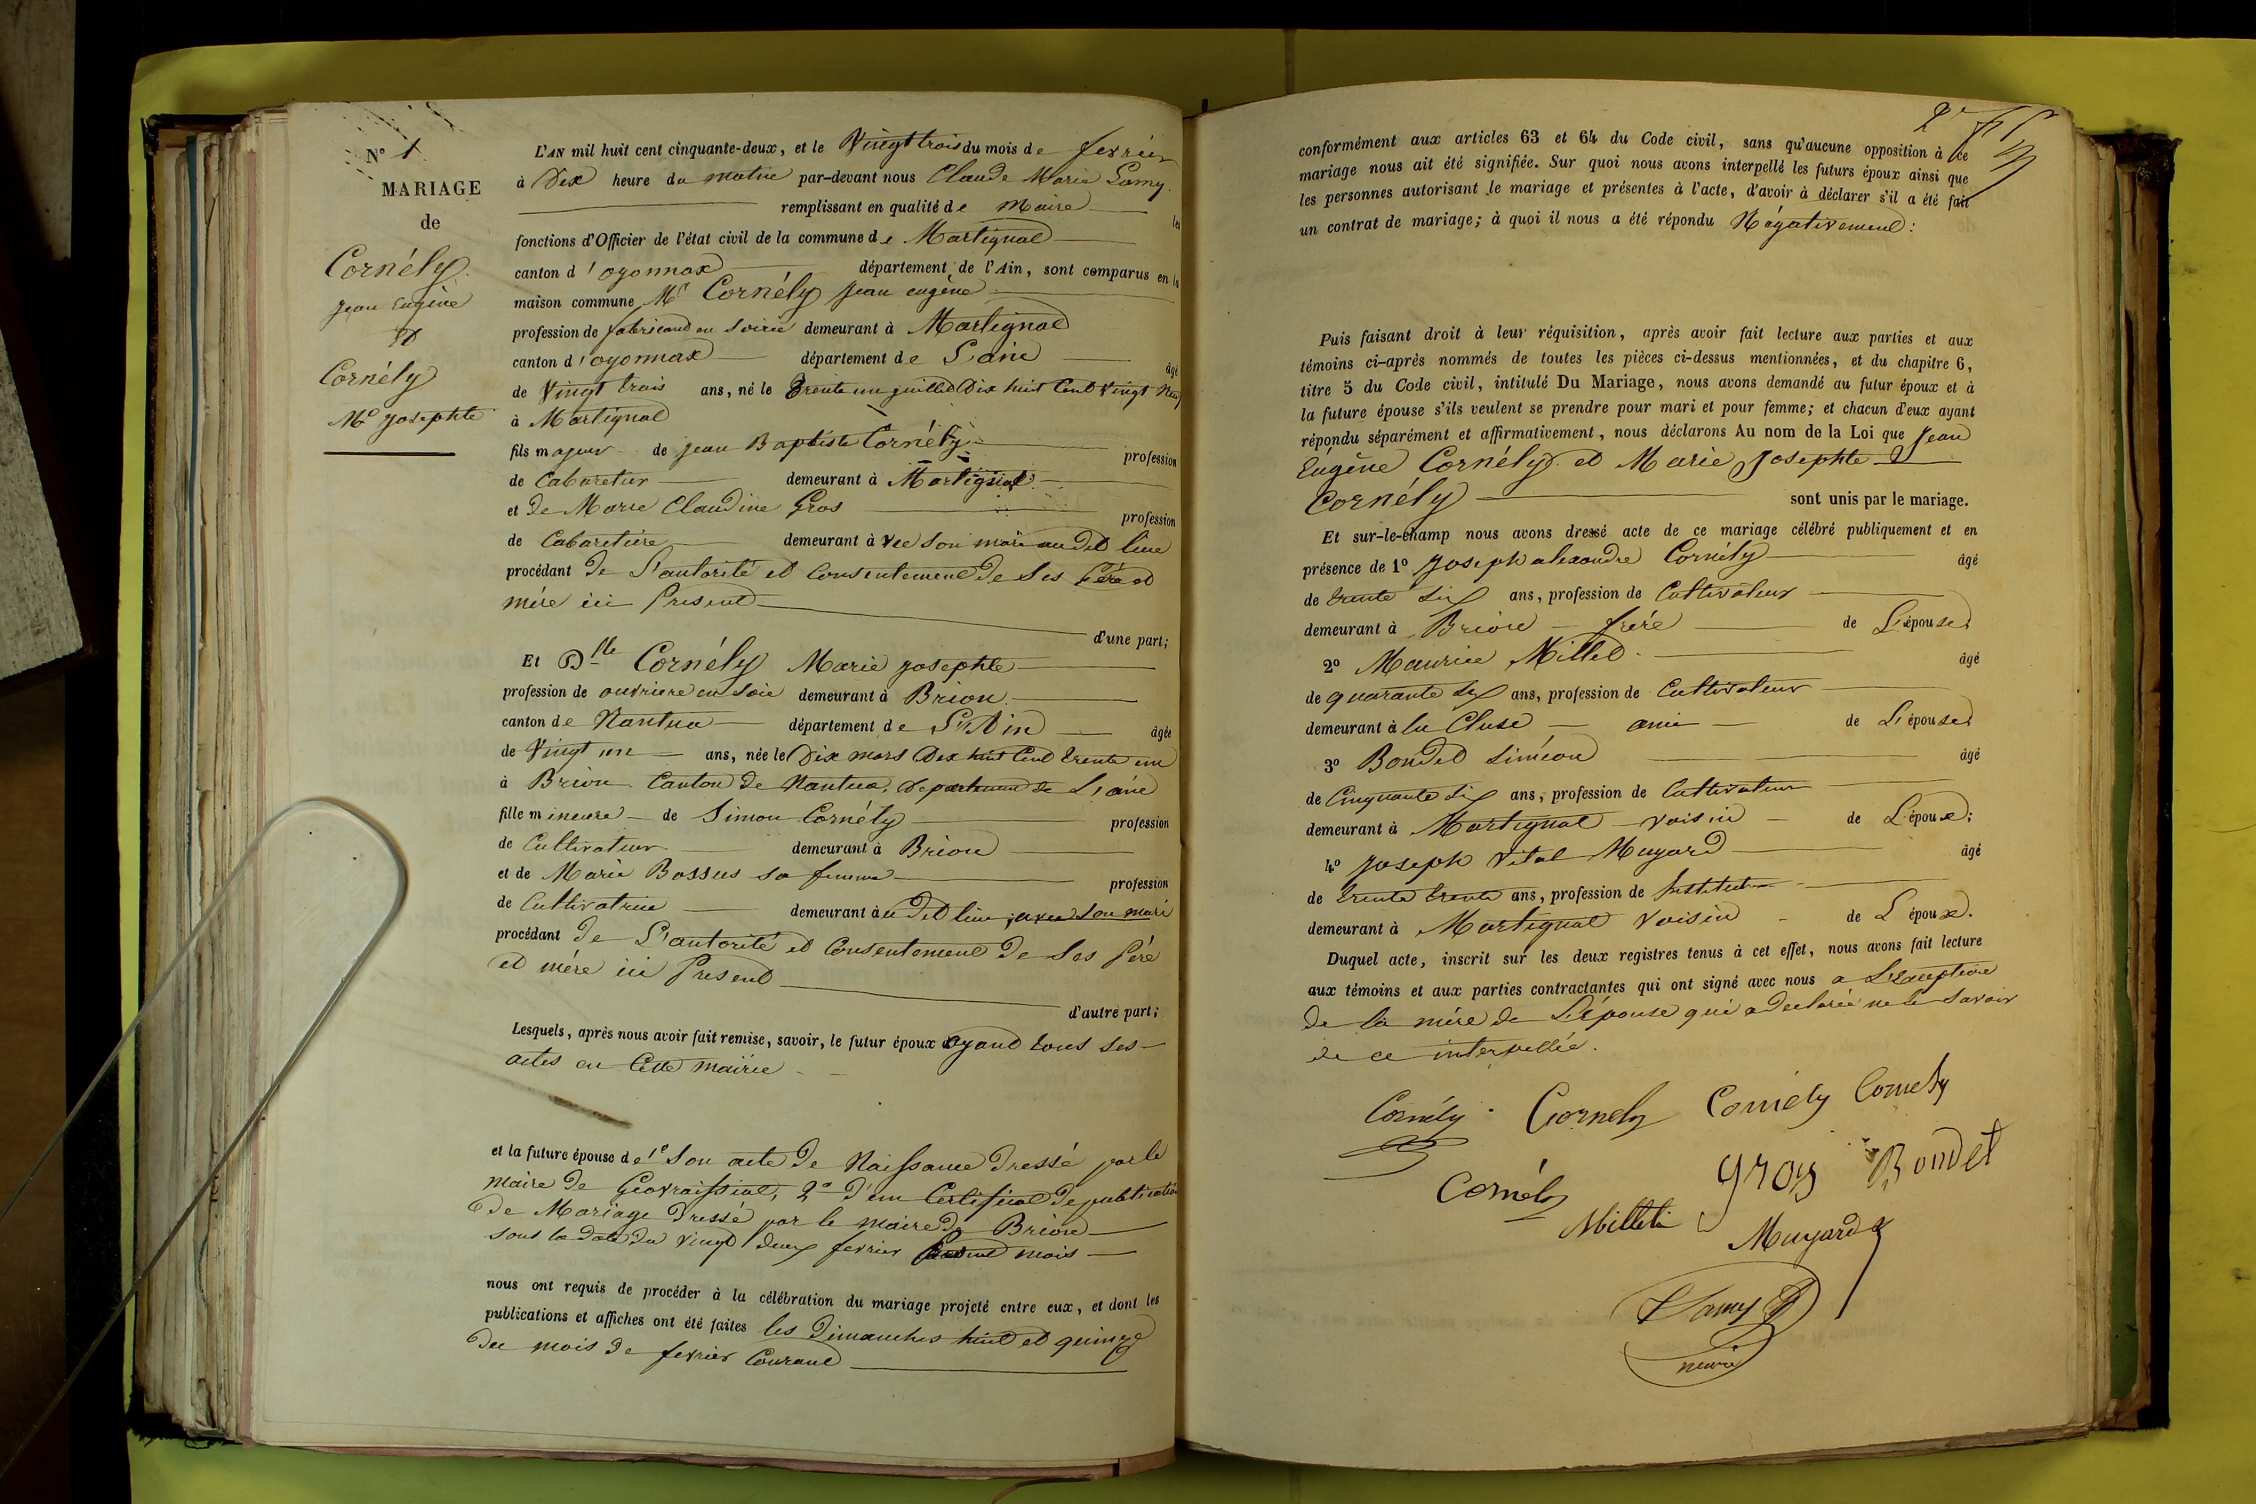 N° 1
MARIAGE
de
Cornély
Jean Eugène
et
Cornély
Mie Josephte
L'AN mil huit cent cinquante-deux, et le Vingt trois du mois de fevrier
à Dix heure du matin par-devant nous Claude Marie Lamy
remplissant en qualité de Maire les
fonctions d'Officier de l'état civil de la commune de Martignat
canton d'oyonnax département de l'Ain, sont comparus en la
maison commune Mr Cornély Jean eugène
profession de fabricand en soirie demeurant à Martignat
canton d'oyonnax département de L'ain âgé
de Vingt trois ans, né le Trente un juillet Dix huit Cent Vingt Neuf
à Martignat
fils majeur de jean Baptiste Cornély profession
de Cabaretier demeurant à Martignat
et de Marie Claudine Gros profession
de Cabaretiere demeurant à vec son mari au dit lieu
procédant de L'autorité et Consentement de Ses Père et
mère ici Present
d'une part;
Et Dlle Cornély Marie josephte
profession de ouvriere en soie demeurant à Brion
canton de Nantua département de L'Ain âgée
de Vingt un ans, née le Dix mars Dix huit Cent trente un
à Brion Canton de Nantua, Departement de L'ain
fille mineure de Simon Cornély profession
de Cultivateur demeurant à Brion
et de Marie Bossus sa femme profession
de Cultivatrice demeurant au dit lieu, avec son mari
procédant de L'autorité et Consentement de Ses Père
et mére ici Present
d'autre part;
Lesquels, après nous avoir fait remise, savoir, le futur époux ayant tous ses
actes en Cette mairie
et la future épouse de 1° Son acte de Naissance dressé par le
maire de Géovraissiat, 2° d'un Certificat de publication
de Mariage dressé par le maire de Brion
sous la date du vingt deux fevrier mois
nous ont requis de procéder à la célébration du mariage projeté entre eux, et dont les
publications et affiches ont été faites les Dimanches huit et quinze
du mois de fevrier Courant
2e
conformément aux articles 63 et 64 du Code civil, sans qu'aucune opposition à ce
mariage nous ait été signifiée. Sur quoi nous avons interpellé les futurs époux ainsi que
les personnes autorisant le mariage et présentes à l'acte, d'avoir à déclarer s'il a été fait
un contrat de mariage; à quoi il nous a été répondu Négativement:
Puis faisant droit à leur réquisition, après avoir fait lecture aux parties et aux
témoins ci-après nommés de toutes les pièces ci-dessus mentionnées, et du chapitre 6,
titre 5 du Code civil, intitulé Du Mariage, nous avons demandé au futur époux et à
la future épouse s'ils veulent se prendre pour mari et pour femme; et chacun d'eux ayant
répondu séparément et affirmativement, nous déclarons Au nom de la Loi que Jean
Eugène Cornély et Marie Josephte
Cornély sont unis par le mariage.
Et sur-le-champ nous avons dressé acte de ce mariage célébré publiquement et en
présence de 1° Joseph alexandre Cornély âgé
de trente six ans, profession de Cultivateur
demeurant à Brion frère de L'épouse;
2° Maurice Millet âgé
de quarante six ans, profession de Cultivateur
demeurant à la Cluse ami de L'épouse;
3° Bondet siméon âgé
de Cinquante six ans, profession de Cultivateur
demeurant à Martignat voisin de L'époux;
4° Joseph Vital Muyard âgé
de trente trente ans, profession de Instituteur
demeurant à Martignat voisin de L'époux.
Duquel acte, inscrit sur les deux registres tenus à cet effet, nous avons fait lecture
aux témoins et aux parties contractantes qui ont signé avec nous a L'exception
de la mére de L'épouse qui a declarée ne le savoir
de ce interpellée.
Cornély Cornely Cornely Cornely
Cornély gros Bondet
Millet Muyard
Lamy
maire